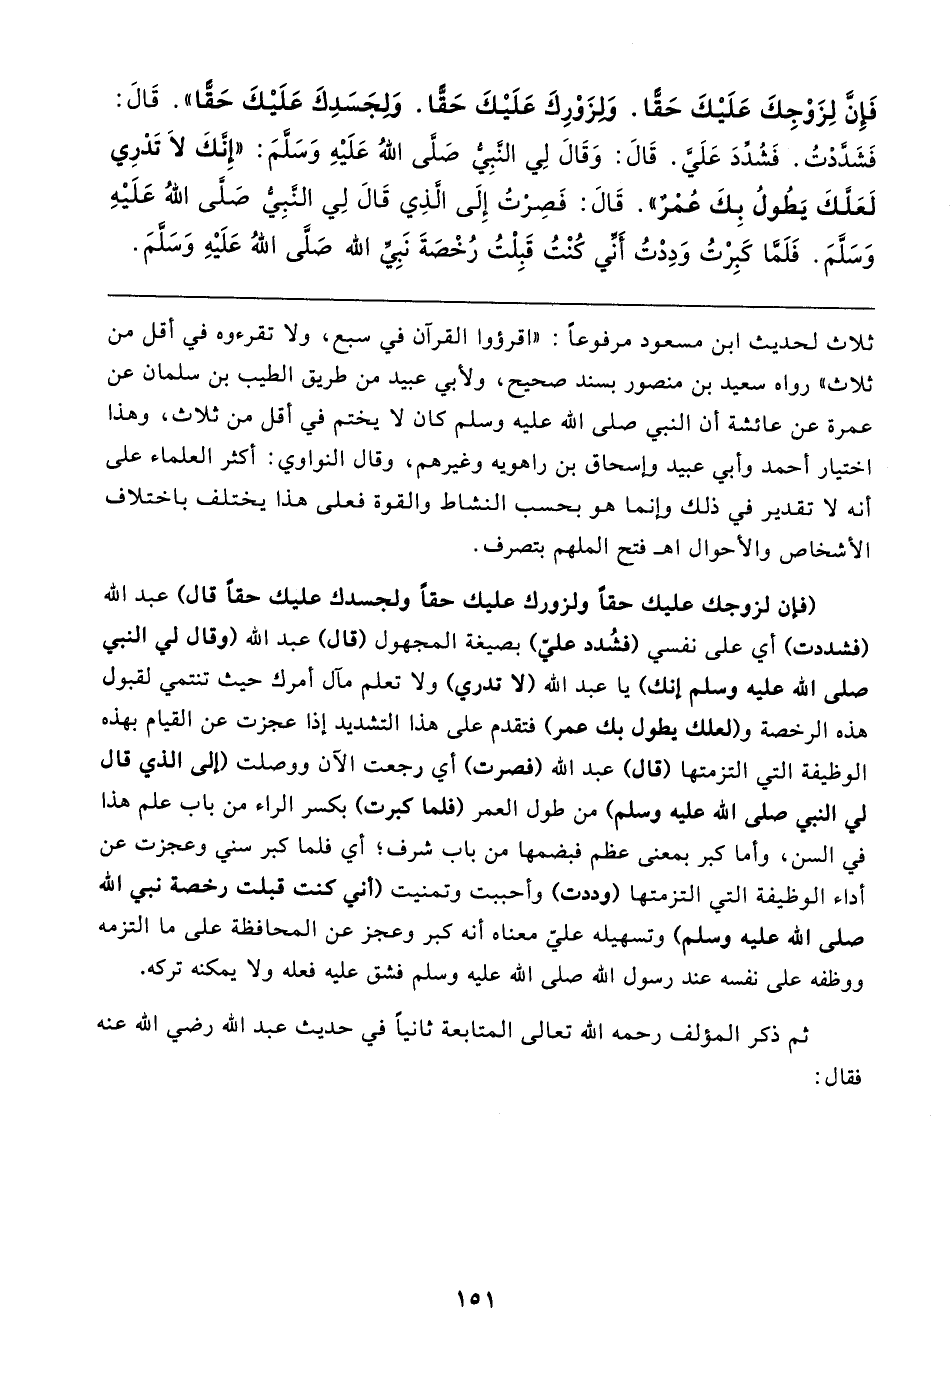 فَإِنَّ لِزَوْجِكَ عَلَيْكَ حَقًّا. وَلِزَوْرِكَ عَلَيْكَ حَقًّا. وَلِجَسَدِكَ عَلَيْكَ حَقًّا». قَالَ:
فَشَدَّدْتُ. فَشُدِّدَ عَلَيَّ. قَالَ: وَقَالَ لِي النَّبِيُّ صَلَّى اللهُ عَلَيْهِ وَسَلَّمَ: «إِنَّكَ لاَ تَدْرِي
لَعَلَّكَ يَطُولُ بِكَ عُمْرٌ». قَالَ: فَصِرْتُ إِلَى الَّذِي قَالَ لِي النَّبِيُّ صَلَّى اللهُ عَلَيْهِ
وَسَلَّمَ. فَلَمَّا كَبِرْتُ وَدِدْتُ أَنِّي كُنْتُ قَبِلْتُ رُخْصَةَ نَبِيِّ اللهِ صَلَّى اللهُ عَلَيْهِ وَسَلَّمَ.
ثلاث لحديث ابن مسعود مرفوعاً: «اقرؤوا القرآن في سبع، ولا تقرءوه في أقل من
ثلاث» رواه سعيد بن منصور بسند صحيح، ولأبي عبيد من طريق الطيب بن سلمان عن
عمرة عن عائشة أن النبي صلى الله عليه وسلم كان لا يختم في أقل من ثلاث، وهذا
اختيار أحمد وأبي عبيد وإسحاق بن راهويه وغيرهم، وقال النواوي: أكثر العلماء على
أنه لا تقدير في ذلك وإنما هو بحسب النشاط والقوة فعلى هذا يختلف باختلاف
الأشخاص والأحوال اهـ فتح الملهم بتصرف.
(فإن لزوجك عليك حقاً ولزورك عليك حقاً ولجسدك عليك حقاً قال) عبد الله
(فشددت) أي على نفسي (فشُدد عليّ) بصيغة المجهول (قال) عبد الله (وقال لي النبي
صلى الله عليه وسلم إنك) يا عبد الله (لا تدري) ولا تعلم مآل أمرك حيث تنتمي لقبول
هذه الرخصة و(لعلك يطول بك عمر) فتقدم على هذا التشديد إذا عجزت عن القيام بهذه
الوظيفة التي التزمتها (قال) عبد الله (فصرت) أي رجعت الآن ووصلت (إلى الذي قال
لي النبي صلى الله عليه وسلم) من طول العمر (فلما كبرت) بكسر الراء من باب علم هذا
في السن، وأما كبر بمعنى عظم فبضمها من باب شرف؛ أي فلما كبر سني وعجزت عن
أداء الوظيفة التي التزمتها (وددت) وأحببت وتمنيت (أني كنت قبلت رخصة نبي الله
صلى الله عليه وسلم) وتسهيله عليّ معناه أنه كبر وعجز عن المحافظة على ما التزمه
ووظفه على نفسه عند رسول الله صلى الله عليه وسلم فشق عليه فعله ولا يمكنه تركه.
ثم ذكر المؤلف رحمه الله تعالى المتابعة ثانياً في حديث عبد الله رضي الله عنه
فقال:
١٥١